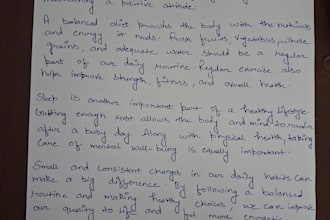 maintaining a positive attitude.
A balanced diet provides the body with the nutrients
and energy it needs. Fresh fruits vegetables, whole
grains, and adequate water should be a regular
part of our daily routine. Regular exercise also
helps improve strength, fitness, and overall health.
Sleep is another important part of a healthy lifestyle.
Getting enough rest allows the body and mind to recover
after a busy day. Along with physical health, taking
care of mental well-being is equally important.
Small and consistent changes in our daily habits can
make a big difference. By following a balanced
routine and making healthy choices, we can improve
our quality of life and feel more energetic